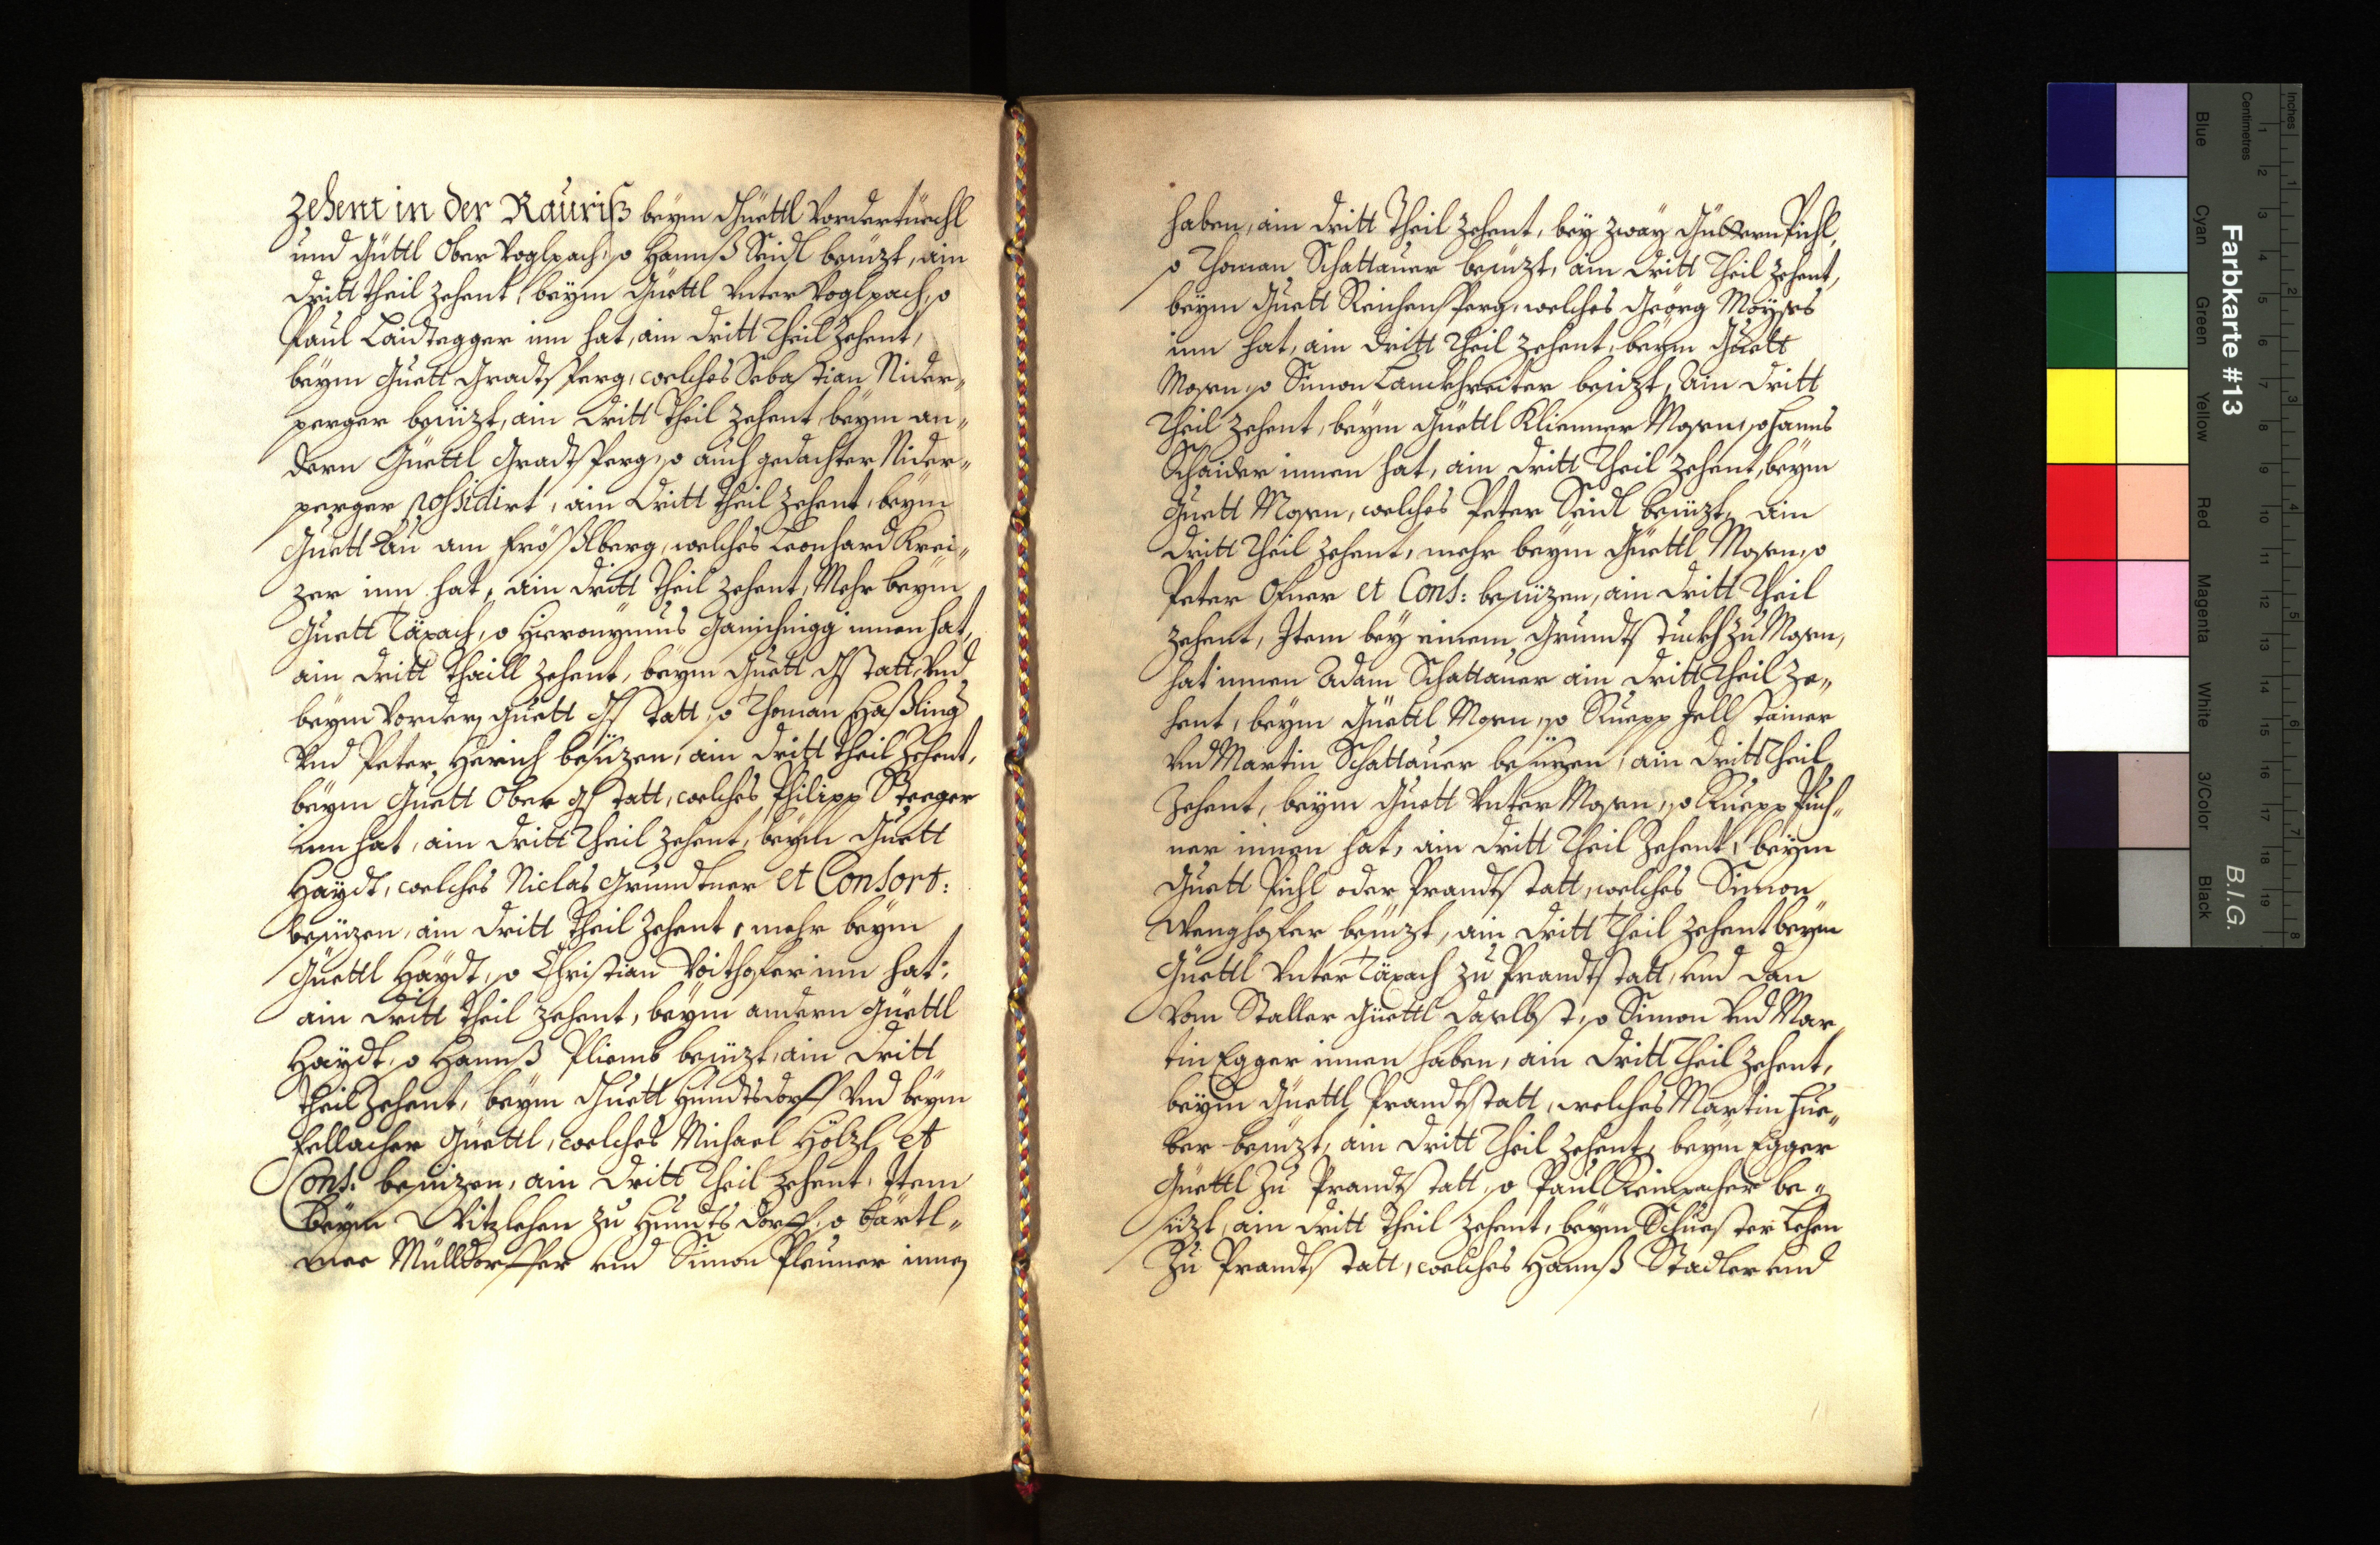 Zehent in der Rauriß beym Guettl Vordertürchl
und Güttl Ober Voglpach, so Hannß Seidl besüzt, ain
dritt theil Zehent, beym Güettl Vnter Voglpach, so
Paul Laidtegger inn hat, ain dritt Theil Zehent,
beym Guett Gradtsperg, welches Sebastian Nider„
perger besüzt, ain dritt Theil Zehent beym an„
dern Güettl Gradtsperg, so auch gedachter Nider„
perger possidirt, ain dritt Theil Zehent, beym
Guett Au am Frößtlberg, welches Leonhard Krei„
zer inn hat, ain dritt Theil Zehent, Mehr beym
Guett Täxach, so Hieronÿmus Ganschnigg innen hat,
ain dritt Thaill Zehent, beym Guett Gstatt, Vnd
beym Vordern Guett Gstatt, so Thoman Haßling
Vnd Peter Herich besüzen, ain dritt Theil Zehent,
beym Guett Ober Gstatt, welches Philipp Steeger
inn hat, ain dritt Theil Zehent, beym Guett
Haydt, welches Niclas Grundtner et Consort:
besüzen, ain dritt Theil Zehent, mehr beym
Güettl Haydt, so Christian Voithofer inn hat,
ain dritt Theil Zehent, beym andern Güettl
Haydt, so Hannß Pliemb besüzt, ain dritt
Theil Zehent, beym Guett Hundtsdorff Vnd beym
Fellacher Güettl, welches Michael Hölzl et
Cons: besüzen, ain dritt Theil Zehent, Item
beym Witzlehen zu Hundtsdorff, so Bärtl„
mee Mülldorffer und Simon Pleuner innen
haben, ain dritt Theil Zehent, bey zway Güettern Pichl,
so Thoman Schattauer besüzt, ain dritt Theil Zehent,
beym Guett Reichensperg, welches Geörg Moyses
inn hat, ain dritt Theil Zehent, beym Guett
Mosen, so Simon Lanckhreiter besüzt, ain dritt
Theil Zehent, beym Güettl Klienner Mosen, so Hanns
Schaider innen hat, ain dritt Theil Zehent, beym
Guett Mosen, welches Peter Seidl besüzt, ain
dritt Theil Zehent, mehr beym Güettl Mosen, so
Peter Ofner et Cons: besüzen, ain dritt Theil
Zehent, Item bey einem Grundtstuckh zu Mosen,
hat innen Adam Schattauer ain dritt Theil Ze„
hent, beym Güettl Mosen, so Ruepp Zellstainer
Vnd Martin Schattauer besüzen, ain dritt Theil
Zehent, beym Guett Vnter Mosen, so Ruepp Puch„
ner innen hat, ain dritt Theil Zehent, beym
Guett Pichl oder Prandtstatt, welches Simon
Wenghofer besüzt, ain dritt Theil Zehent beym
Güettl Vnter Täxach zu Prandtstatt, und dan
Vom Staller Güettl daselbst, so Simon Vnd Mar„
tin Egger innen haben, ain dritt Theil Zehent,
beym Güettl Prandtstatt, welches Martin Hue„
ber besüzt, ain dritt Theil Zehent, beym Egger
Güettl Zu Prandtstatt, so Paul Reinpacher be„
süzt, ain dritt Theil Zehent, beym Schuester Lehen
Zu Prandtstatt, welches Hannß Stadler und
Farbkarte #13
B.I.G.
Inches
Centimetres
Blue
Cyan
Green
Yellow
Red
Magenta
White
3/Color
Black